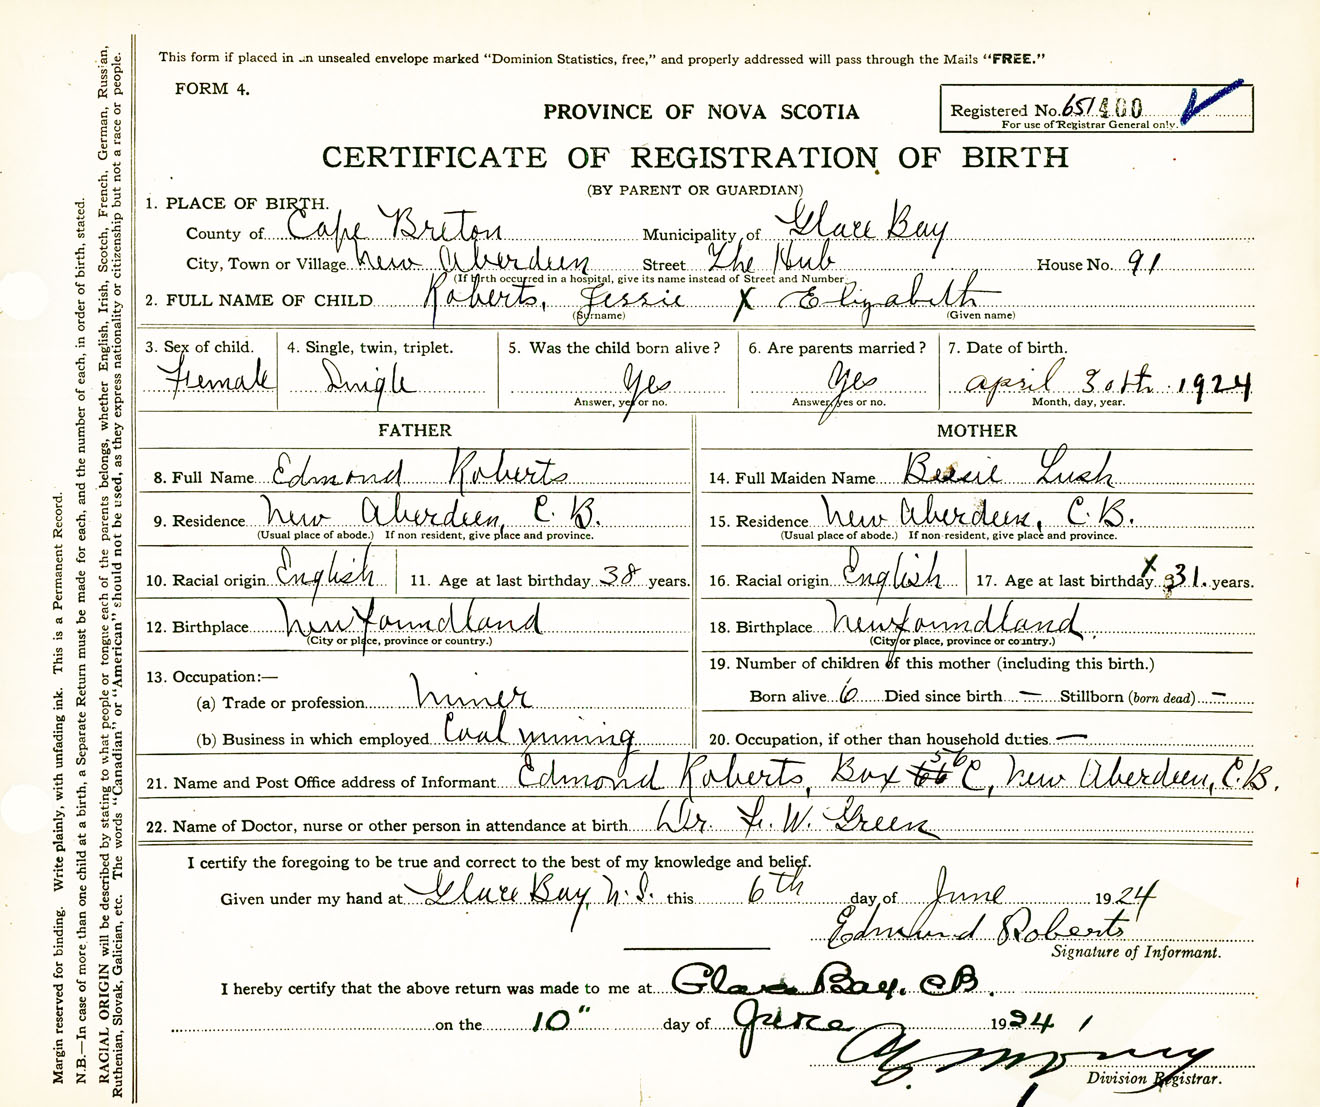 This form if placed in an unsealed envelope marked "Dominion Statistics, free," and properly addressed will pass through the Mails "FREE."
FORM 4.
PROVINCE OF NOVA SCOTIA
Registered No. 651400
For use of Registrar General only.
CERTIFICATE OF REGISTRATION OF BIRTH
(BY PARENT OR GUARDIAN)
1. PLACE OF BIRTH.
County of Cape Breton Municipality of Glace Bay
City, Town or Village New Aberdeen Street The Hub House No. 91
(If birth occurred in a hospital, give its name instead of Street and Number
2. FULL NAME OF CHILD Roberts, Jessie X Elizabeth
(Surname) (Given name)
3. Sex of child. 4. Single, twin, triplet. 5. Was the child born alive? 6. Are parents married? 7. Date of birth.
Female Single Yes Yes April 30th 1924
Answer, yes or no. Answer, yes or no. Month, day, year.
FATHER MOTHER
8. Full Name Edmond Roberts 14. Full Maiden Name Bessie Lush
9. Residence New Aberdeen, C.B. 15. Residence New Aberdeen, C.B.
(Usual place of abode.) If non resident, give place and province. (Usual place of abode.) If non-resident, give place and province.
10. Racial origin English 11. Age at last birthday 38 years. 16. Racial origin English 17. Age at last birthday X 31. years.
12. Birthplace Newfoundland 18. Birthplace Newfoundland.
(City or place, province or country.) (City or place, province or country.)
13. Occupation:— 19. Number of children of this mother (including this birth.)
(a) Trade or profession Miner Born alive 6 Died since birth — Stillborn (born dead) —
(b) Business in which employed Coal mining 20. Occupation, if other than household duties —
21. Name and Post Office address of Informant Edmond Roberts, Box 56 C, New Aberdeen, C.B.
22. Name of Doctor, nurse or other person in attendance at birth Dr. F. W. Green
I certify the foregoing to be true and correct to the best of my knowledge and belief.
Given under my hand at Glace Bay, N.S. this 6th day of June 1924
Edmund Roberts
Signature of Informant.
I hereby certify that the above return was made to me at Glace Bay. CB.
on the 10" day of June 1924
Division Registrar.
Margin reserved for binding. Write plainly, with unfading ink. This is a Permanent Record.
N.B.—In case of more than one child at a birth, a Separate Return must be made for each, and the number of each, in order of birth, stated.
RACIAL ORIGIN will be described by stating to what people or tongue each of the parents belongs, whether English, Irish, Scotch, French, German, Russian,
Ruthenian, Slovak, Galician, etc. The words "Canadian" or "American" should not be used, as they express nationality or citizenship but not a race or people.